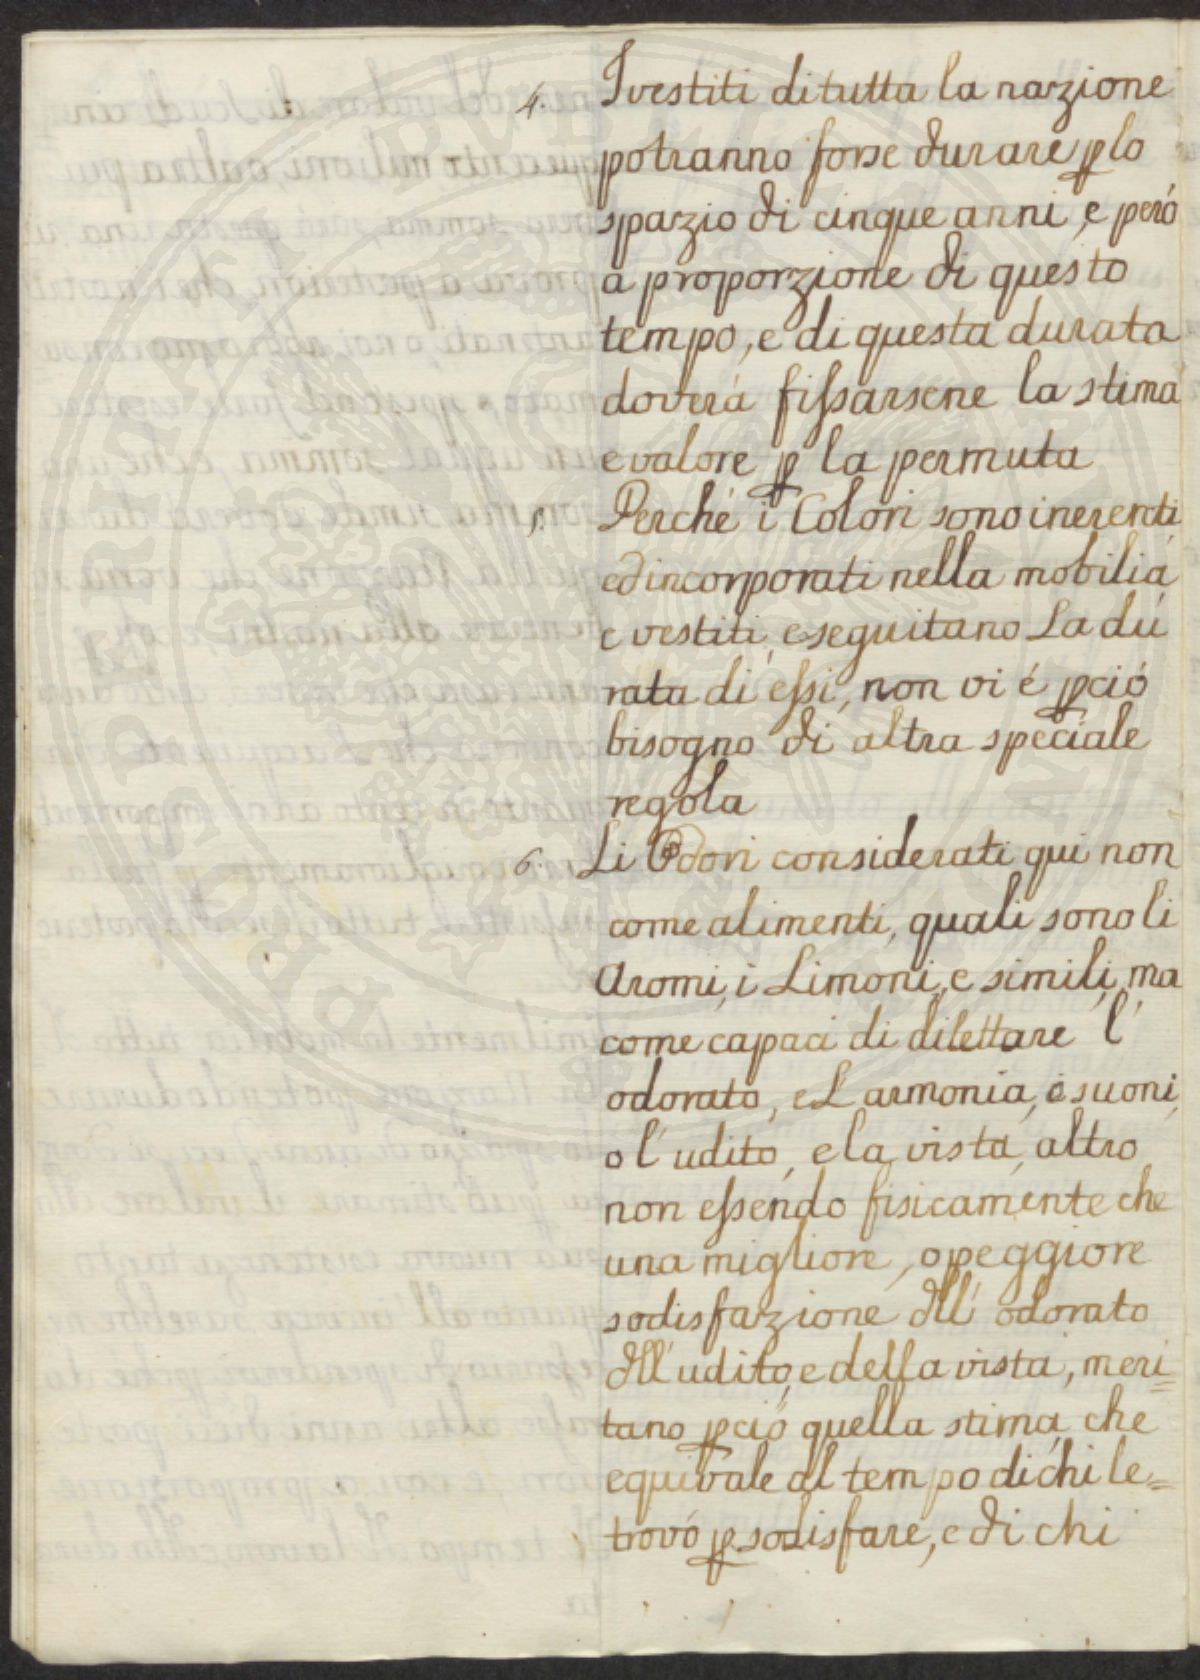 4. I vestiti di tutta la nazione
potranno forse durare p lo
spazio di cinque anni, e peró
a proporzione di questo
tempo, e di questa durata
doverá fissarsene la stima
e valore p la permuta
5. Perché i Colori sono inerenti
ed incorporati nella mobiliá
e vestiti, e seguitano La du
rata di essi, non vi é pció
bisogno di altra speciale
regola
6. Li Odori considerati qui non
come alimenti, quali sono li
Aromi, i Limoni, e simili, ma
come capaci di dilettare l'
odorato, e L'armonia, i suoni,
o l'udito, e la vista, altro
non essendo fisicamente che
una migliore, o peggiore
sodisfazione dll' odorato
dll' udito, e della vista, meri=
tano pció quella stima, che
equivale al tempo di chi le=
trovó p sodisfare, e di chi